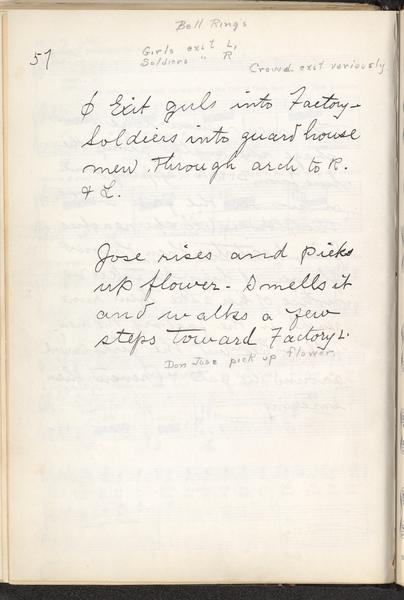 Bell Ring's
57
Girls exit L,
Soldiers " R
Crowd exit variously
ϕ Exit girls into Factory-
Soldiers into guard house
men. Through arch to R.
& L.
Jose rises and picks
up flower - Smells it
and walks a few
steps toward Factory L.
Don Jose pick up flower